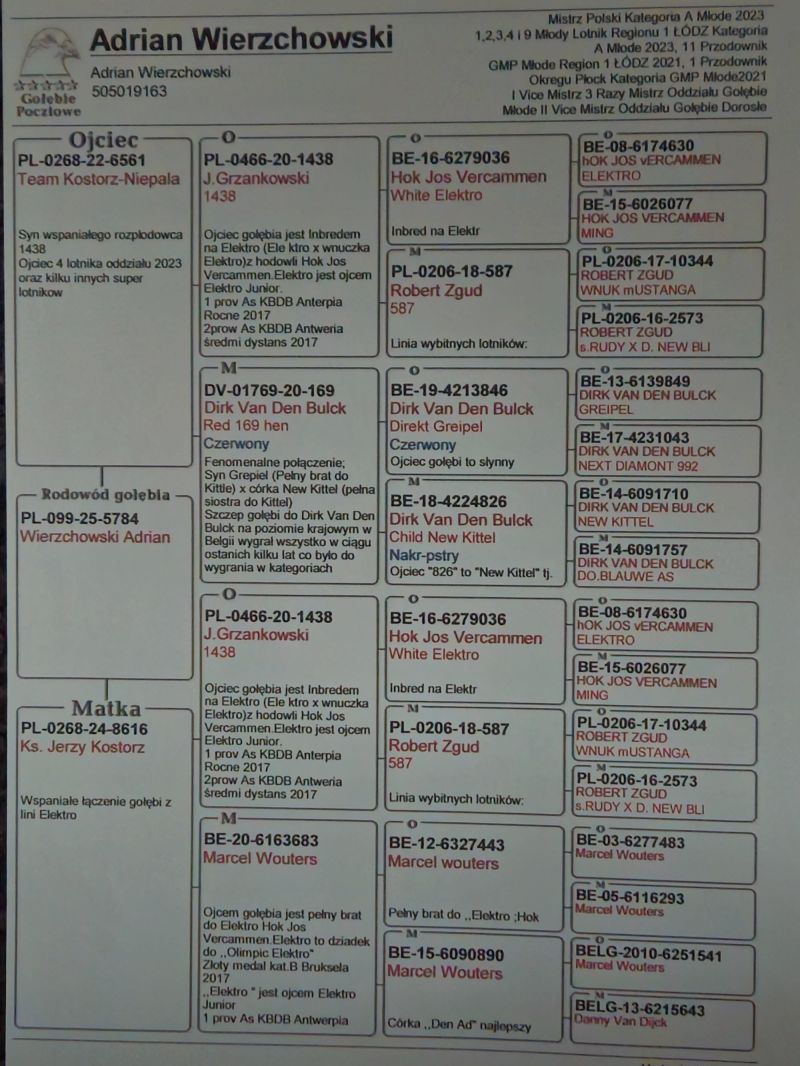 Adrian Wierzchowski
Adrian Wierzchowski
505019163
Gołębie
Pocztowe
Mistrz Polski Kategoria A Młode 2023
1,2,3,4 i 9 Młody Lotnik Regionu 1 ŁÓDZ Kategoria
A Młode 2023, 11 Przodownik
GMP Młode Region 1 ŁÓDZ 2021, 1 Przodownik
Okregu Płock Kategoria GMP Młode2021
I Vice Mistrz 3 Razy Mistrz Oddziału Gołębie
Młode II Vice Mistrz Oddziału Gołębie Dorosłe
Ojciec
PL-0268-22-6561
Team Kostorz-Niepala
Syn wspaniałego rozpłodowca
1438
Ojciec 4 lotnika oddziału 2023
oraz kilku innych super
lotnikow
Rodowód gołębia
PL-099-25-5784
Wierzchowski Adrian
Matka
PL-0268-24-8616
Ks. Jerzy Kostorz
Wspaniałe łączenie gołębi z
lini Elektro
O
PL-0466-20-1438
J.Grzankowski
1438
Ojciec gołębia jest Inbredem
na Elektro (Ele ktro x wnuczka
Elektro)z hodowli Hok Jos
Vercammen.Elektro jest ojcem
Elektro Junior.
1 prov As KBDB Anterpia
Rocne 2017
2prow As KBDB Antweria
średmi dystans 2017
M
DV-01769-20-169
Dirk Van Den Bulck
Red 169 hen
Czerwony
Fenomenalne połączenie;
Syn Grepiel (Pełny brat do
Kittle) x córka New Kittel (pełna
siostra do Kittel)
Szczep gołębi do Dirk Van Den
Bulck na poziomie krajowym w
Belgii wygrał wszystko w ciągu
ostanich kilku lat co było do
wygrania w kategoriach
O
PL-0466-20-1438
J.Grzankowski
1438
Ojciec gołębia jest Inbredem
na Elektro (Ele ktro x wnuczka
Elektro)z hodowli Hok Jos
Vercammen.Elektro jest ojcem
Elektro Junior.
1 prov As KBDB Anterpia
Rocne 2017
2prow As KBDB Antweria
średmi dystans 2017
M
BE-20-6163683
Marcel Wouters
Ojcem gołębia jest pełny brat
do Elektro Hok Jos
Vercammen.Elektro to dziadek
do ,,Olimpic Elektro"
Złoty medal kat.B Bruksela
2017
,,Elektro " jest ojcem Elektro
Junior
1 prov As KBDB Antwerpia
O
BE-16-6279036
Hok Jos Vercammen
White Elektro
Inbred na Elektr
M
PL-0206-18-587
Robert Zgud
587
Linia wybitnych lotników:
O
BE-19-4213846
Dirk Van Den Bulck
Direkt Greipel
Czerwony
Ojciec gołębi to słynny
M
BE-18-4224826
Dirk Van Den Bulck
Child New Kittel
Nakr-pstry
Ojciec "826" to "New Kittel" tj.
O
BE-16-6279036
Hok Jos Vercammen
White Elektro
Inbred na Elektr
M
PL-0206-18-587
Robert Zgud
587
Linia wybitnych lotników:
O
BE-12-6327443
Marcel wouters
Pełny brat do ,,Elektro ;Hok
M
BE-15-6090890
Marcel Wouters
Córka ,,Den Ad" najlepszy
O
BE-08-6174630
hOK JOS vERCAMMEN
ELEKTRO
M
BE-15-6026077
HOK JOS VERCAMMEN
MING
O
PL-0206-17-10344
ROBERT ZGUD
WNUK mUSTANGA
M
PL-0206-16-2573
ROBERT ZGUD
s.RUDY X D. NEW BLI
O
BE-13-6139849
DIRK VAN DEN BULCK
GREIPEL
M
BE-17-4231043
DIRK VAN DEN BULCK
NEXT DIAMONT 992
O
BE-14-6091710
DIRK VAN DEN BULCK
NEW KITTEL
M
BE-14-6091757
DIRK VAN DEN BULCK
DO.BLAUWE AS
O
BE-08-6174630
hOK JOS vERCAMMEN
ELEKTRO
M
BE-15-6026077
HOK JOS VERCAMMEN
MING
O
PL-0206-17-10344
ROBERT ZGUD
WNUK mUSTANGA
M
PL-0206-16-2573
ROBERT ZGUD
s.RUDY X D. NEW BLI
O
BE-03-6277483
Marcel Wouters
M
BE-05-6116293
Marcel Wouters
O
BELG-2010-6251541
Marcel Wouters
M
BELG-13-6215643
Danny Van Dijck